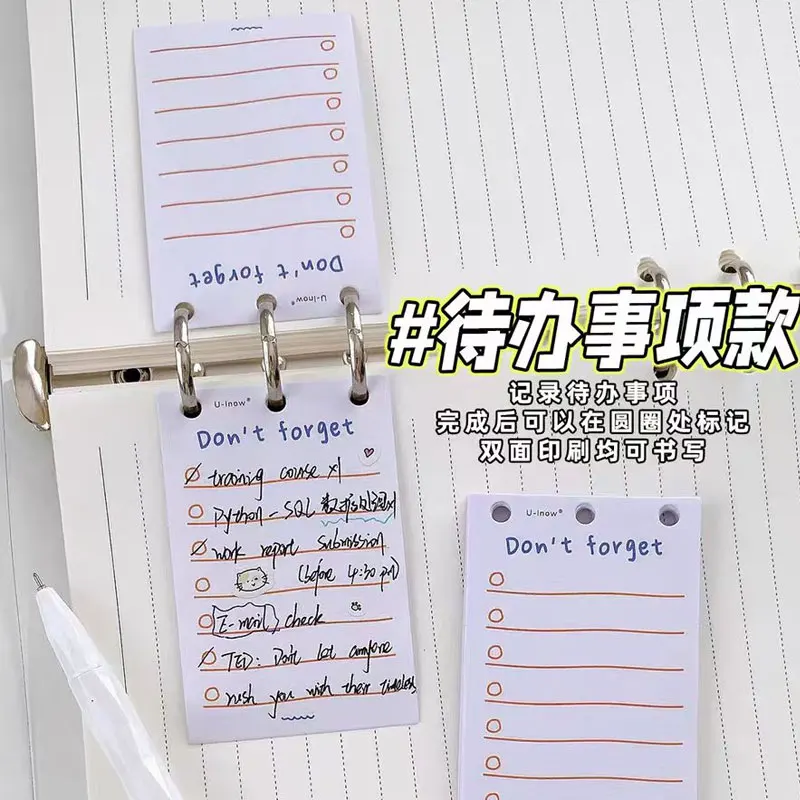 Don't forget
U-Inow®
#待办事项款
记录待办事项
完成后可以在圆圈处标记
双面印刷均可书写
U-Inow®
Don't forget
training course x1
Python - SQL
work report submission
(before 4:30 pm)
E-mail check
TED: Don't let anyone
rush you with their timelines
U-Inow®
Don't forget